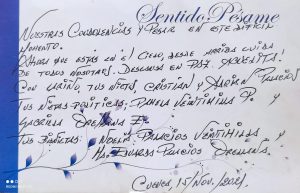 Sentido Pésame
Nuestras Condolencias y Pesar en este dificil
momento.
Ahora que estas en el Cielo, desde arriba cuida
de todos nosotros. Descansa en Paz
Con cariño, tus nietos, Cristian y
Tus nietas políticas: Pamela Ventimilla P. y
Gabriela Orellana
Tus bisnietas: Noelia Palacios Ventimilla y
Palacios Orellana.
Cuenca 15/Nov./2021.